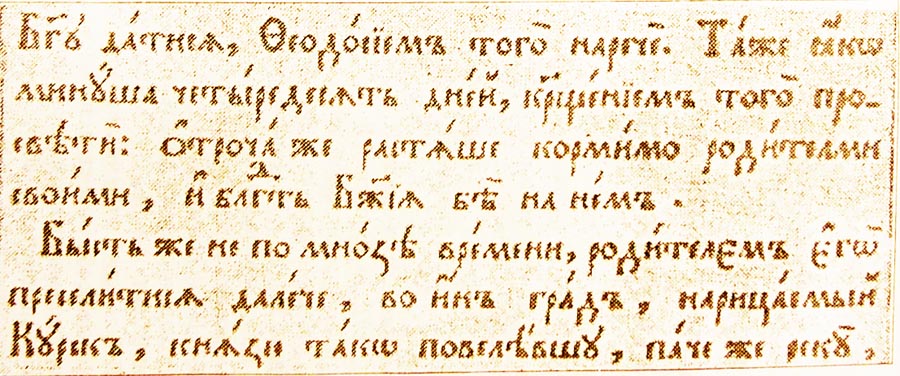 Бг҃ꙋ да́тнсѧ, Ѳеодо́сїемъ того̀ наречѐ. Та́же ꙗ҆́кѡ
минꙋ́ша четы́редесѧть дне́й, кр҃ще́нїемъ того̀ про-
свѣтѝ: Ѻ҆троча́ же растѧ́ше корми́мо роди́телми
свои́ми, и҆ блгⷣть Бж҃їѧ бѣ̀ на не́мъ.
Бы́сть же не по мно́зѣ вре́мени, роди́телємъ є҆гѡ̀
преселѝтисѧ дале́че, во и҆́нъ гра́дъ, нарица́емый
Кꙋ́рскъ, кнѧ́зю та́кѡ повелѣ́вшꙋ, па́че же рекꙋ̀,